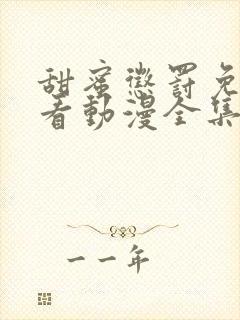 甜蜜懲罰免
看動漫全集
一一年